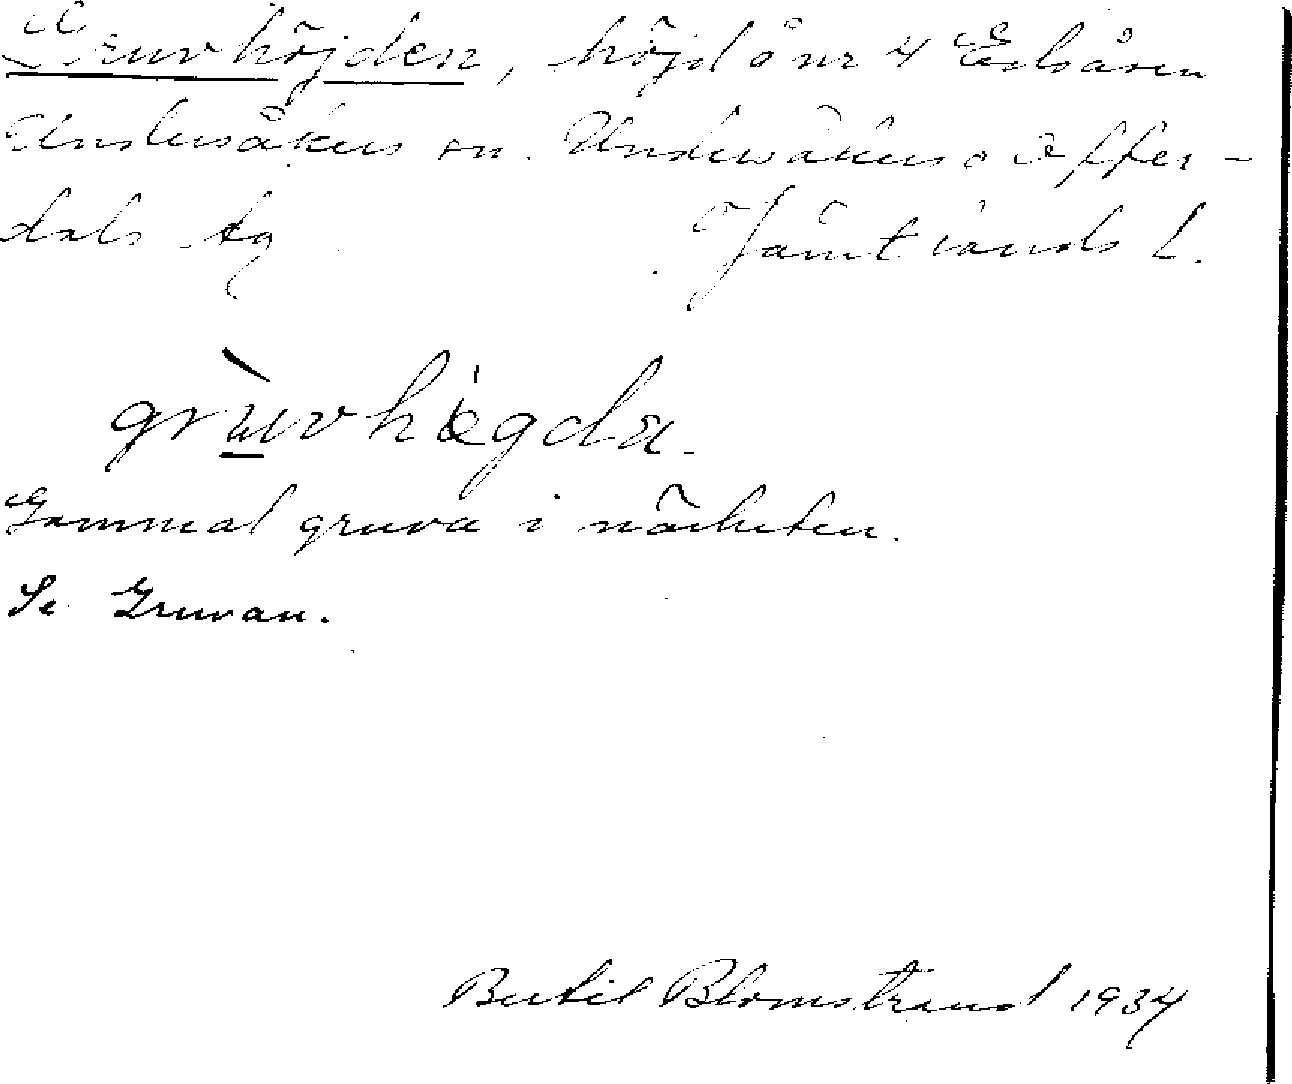 Gruvhöjden, höjd å nr 4 Edsåsen
Undersåkers sn. Undersåkers o Offer-
dals tg Jämtlands l.
grùvhœgda.
Gammal gruva i närheten.
Se Gruvan.
Bertil Blomstrand 1934